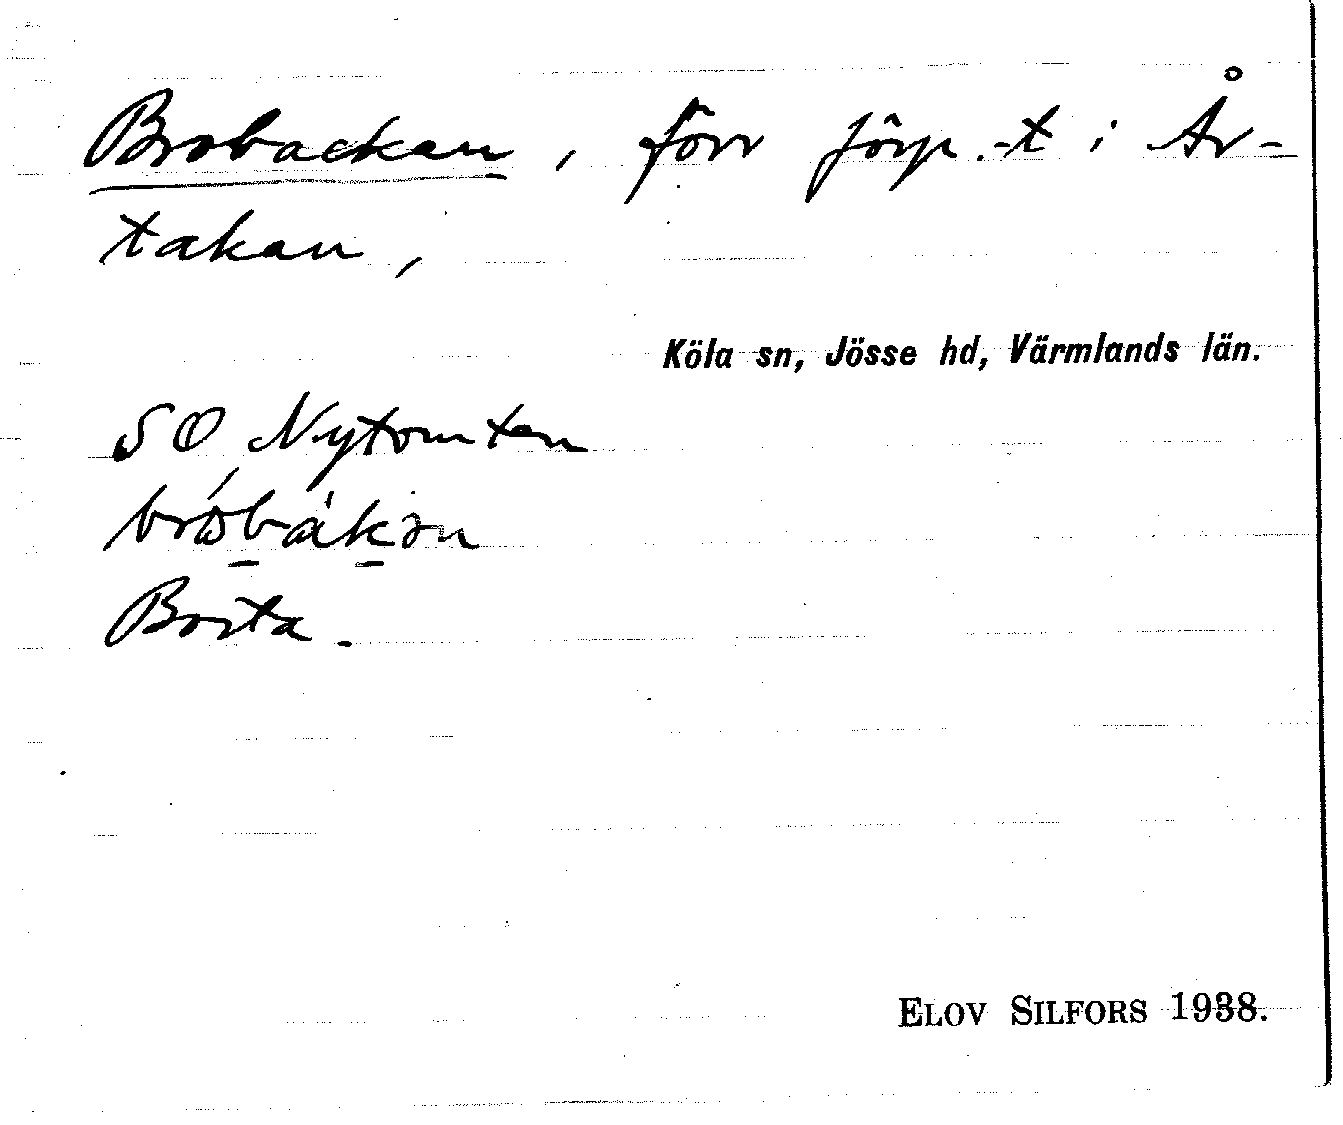 Brobackan, förr förp.-t i År-
takan,
Köla sn, Jösse hd, Värmlands län.
SO Nytomten
bròbákən
Borta.
ELOV SILFORS 1938.